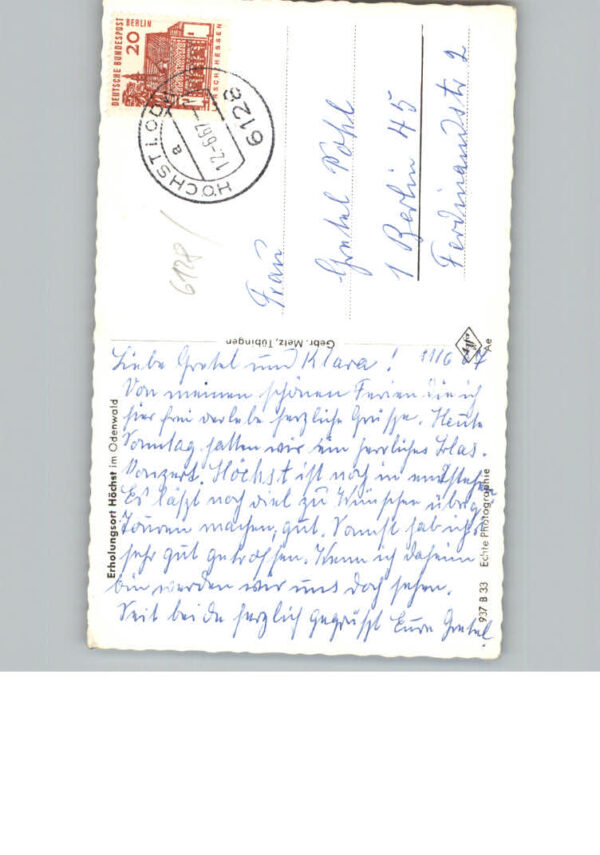 DEUTSCHE BUNDESPOST BERLIN
20
HÖCHST I. ODW
a
12.-6.67
6128
6128
Frau
Gretel Pohl
1 Berlin 45
Ferdinandstr 2
Gebr. Metz, Tübingen
Ae
Erholungsort Höchst im Odenwald
937 B 33 Echte Photographie
Liebe Gretel und Klara! 11/6 67
Von meinen schönen Ferien die ich
hier frei verlebe herzliche Grüsse. Heute
Sonntag hatten wir ein herrliches Blas.
Konzert. Höchst ist noch im entstehen
Es läßt noch viel zu Wünschen übrig
Touren machen, gut. Sonst hab ichs
sehr gut getroffen. Wenn ich daheim
bin werden wir uns doch sehen.
Seit beide herzlich gegrüßt Eure Gretel